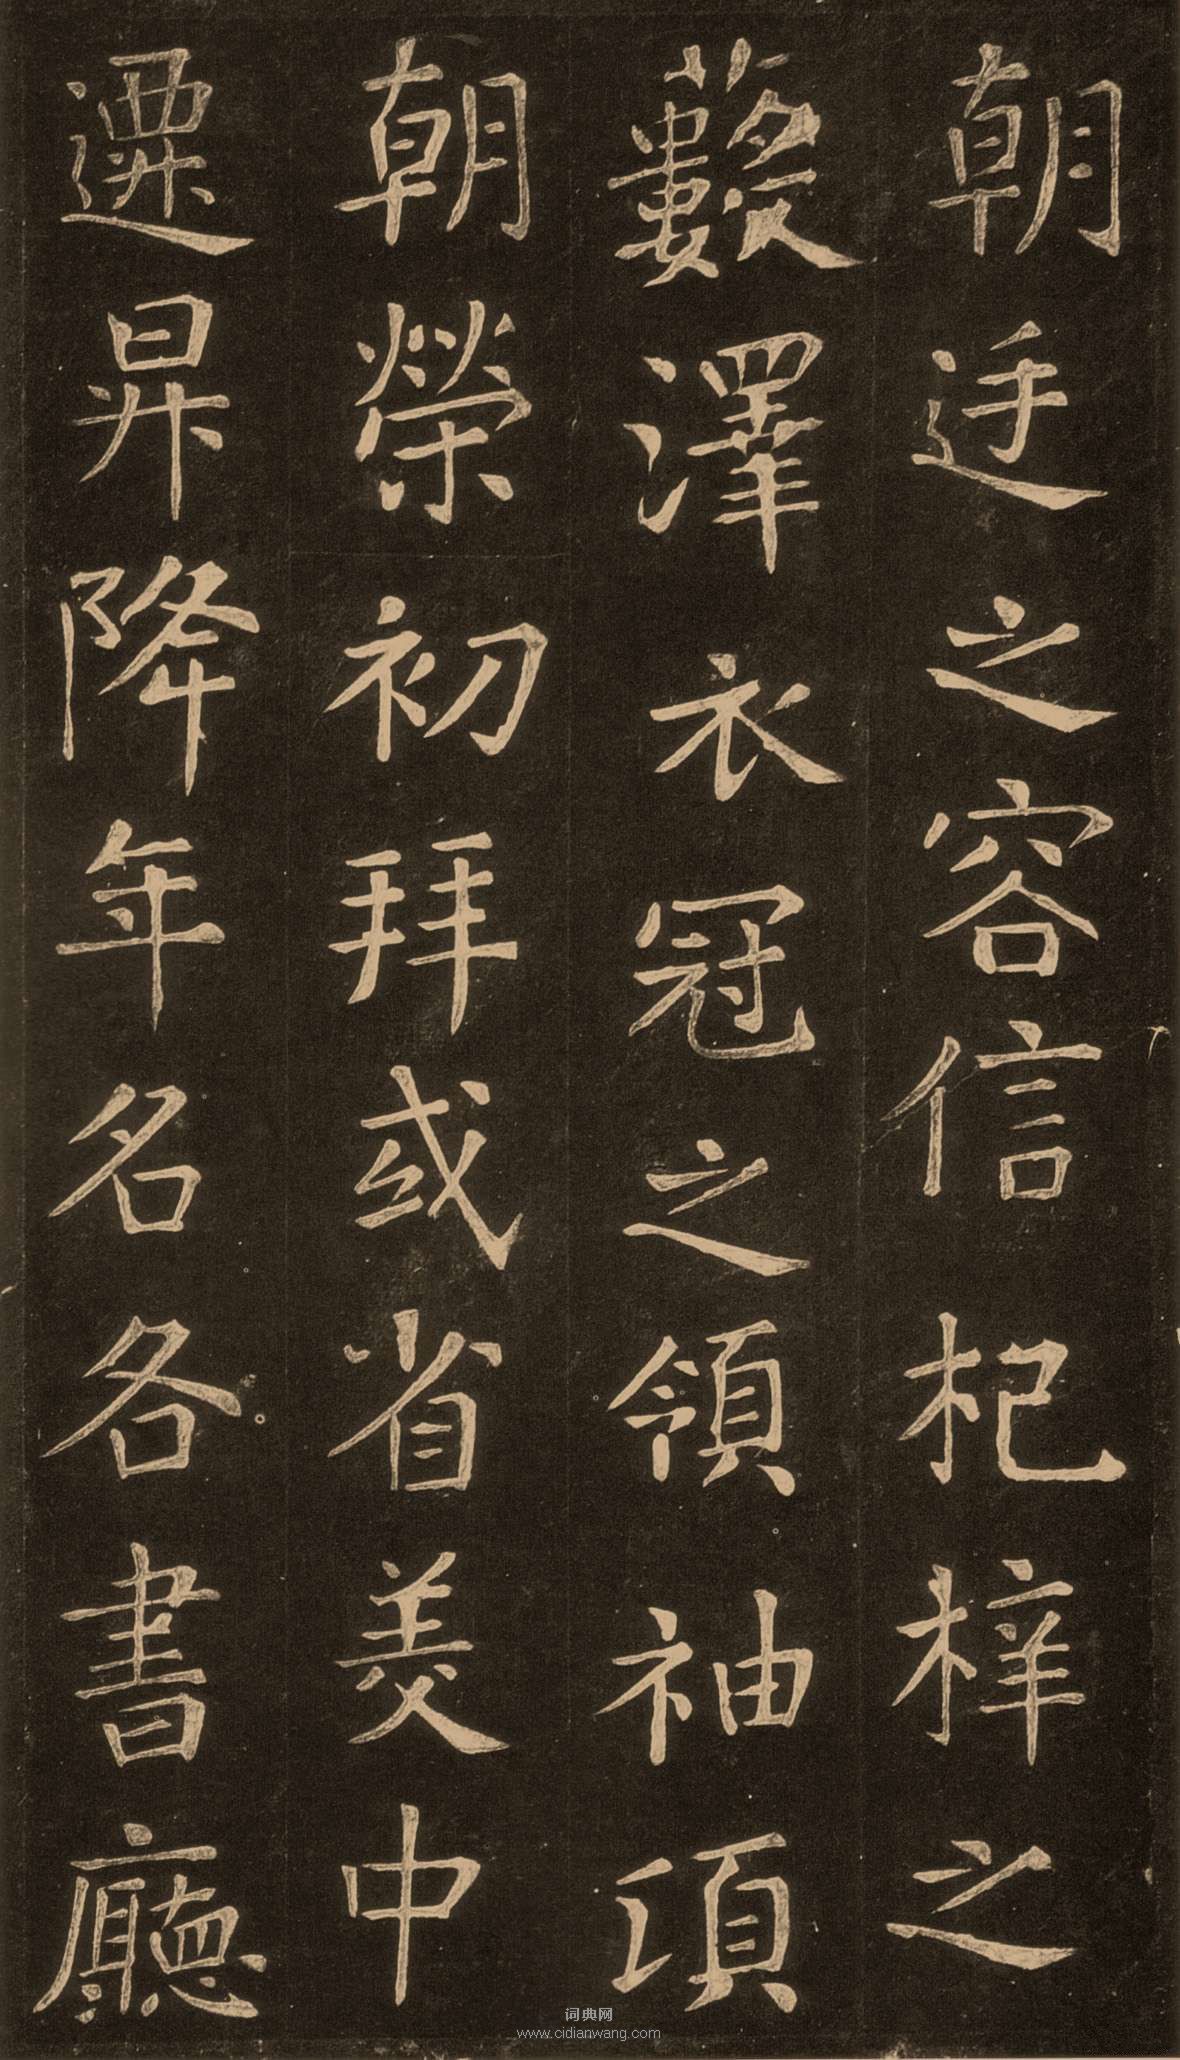 朝廷之容信杞梓之
薮澤衣冠之領袖頃
朝榮初拜或省美中
遷昇降年名各書廳
词典网
www.cidianwang.com